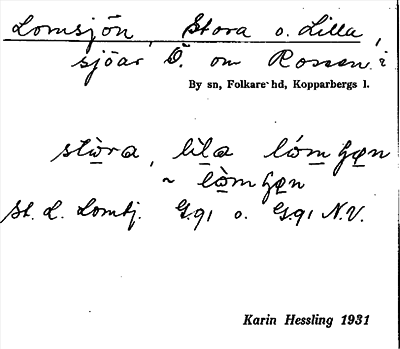 Lomsjön, Stora o. Lilla,
sjöar Ö. om Rossen i
By sn, Folkare hd, Kopparbergs l.
stò̀ra, lìla lóm
~ lòm
St. L. Lomtj. G.91 o. G.91 N.V.
Karin Hessling 1931